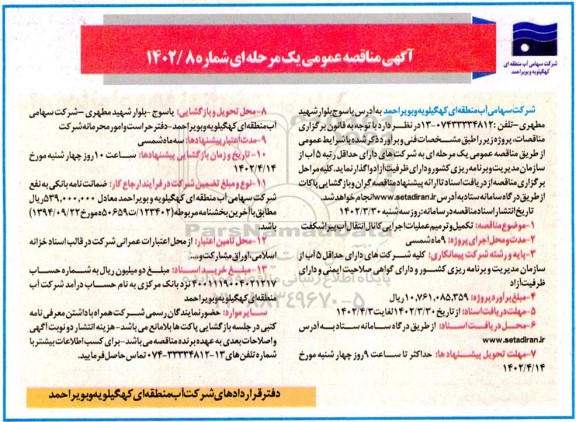 شرکت سهامی آب منطقه ای
کهگیلویه و بویراحمد
آگهی مناقصه عمومی یک مرحله ای شماره ۱۴۰۲/۸
شرکت سهامی آب منطقه‌ای کهگیلویه و بویراحمد به آدرس یاسوج بلوار شهید
مطهری-تلفن :۰۷۴۳۳۳۳۴۸۱۲-۱۳ در نظر دارد با توجه به قانون برگزاری
مناقصات، پروژه زیر را طبق مشخصات فنی و برآورد ذکر شده با شرایط عمومی
از طریق مناقصه عمومی یک مرحله ای به شرکت های دارای حداقل رتبه ۵ آب از
سازمان مدیریت و برنامه ریزی کشور و دارای ظرفیت آزاد واگذار نماید. کلیه مراحل
برگزاری مناقصه از دریافت اسناد تا ارائه پیشنهاد مناقصه گران و بازگشایی پاکات
از طریق درگاه سامانه ستاد به آدرس www.setadiran.ir انجام خواهد شد.
تاریخ انتشار اسناد مناقصه در سامانه: روز سه شنبه ۱۴۰۲/۳/۳۰
۱-موضوع مناقصه: تکمیل و ترمیم عملیات اجرایی کانال انتقال آب بیرانشکفت
۲-مدت و محل اجرای پروژه: ۹ ماه شمسی
۳-پایه و رشته شرکت پیمانکاری: کلیه شرکت های دارای حداقل رتبه ۵ آب از
سازمان مدیریت و برنامه ریزی کشور و دارای گواهی صلاحیت ایمنی و دارای
ظرفیت آزاد
۴-مبلغ برآورد پروژه: ۱۰،۷۶۱،۰۸۵،۳۵۹ ریال
۵-مهلت دریافت اسناد: از تاریخ ۱۴۰۲/۳/۳۰ لغایت ۱۴۰۲/۴/۳
۶-محل دریافت اسناد: از طریق درگاه سامانه ستاد به آدرس
www.setadiran.ir
۷-مهلت تحویل پیشنهاد ها: حداکثر تا ساعت ۹ روز چهار شنبه مورخ
۱۴۰۲/۴/۱۴
۸-محل تحویل و بازگشایی: یاسوج-بلوار شهید مطهری –شرکت سهامی
آب منطقه‌ای کهگیلویه و بویراحمد-دفتر حراست و امور محرمانه شرکت
۹-مدت اعتبار پیشنهادها: سه ماه شمسی
۱۰-تاریخ و زمان بازگشایی پیشنهادها: ساعت ۱۰ روز چهار شنبه مورخ
۱۴۰۲/۴/۱۴
۱۱-نوع و مبلغ تضمین شرکت در فرآیند ارجاع کار: ضمانت نامه بانکی به نفع
شرکت سهامی آب منطقه ای کهگیلویه و بویراحمد معادل ۵۳۹،۰۰۰،۰۰۰ ریال
مطابق با آخرین بخشنامه مربوطه (۱۲۳۴۰۲/ت۵۰۶۵۹ه مورخ ۱۳۹۴/۰۹/۲۲)
باشد.
۱۲-محل تامین اعتبار: از محل اعتبارات عمرانی شرکت در قالب اسناد خزانه
اسلامی، اوراق مشارکت و...
۱۳-مبلغ خرید اسناد: مبلغ دو میلیون ریال به شماره حساب
۴۰۰۱۱۱۹۰۰۴۰۳۱۲۱۷ نزد بانک مرکزی به نام حساب درآمد شرکت آب
منطقه‌ای کهگیلویه و بویراحمد
سایر موارد: حضور نمایندگان رسمی شرکت همراه با داشتن معرفی نامه
کتبی در جلسه بازگشایی پاکت ها بلامانع می باشد-هزینه انتشار دو نوبت آگهی
و اصلاحات بعدی به عهده برنده مناقصه می باشد-برای کسب اطلاعات بیشتر با
شماره تلفن های ۱۳-۳۳۳۳۴۸۱۲-۰۷۴ تماس حاصل فرمایید.
دفتر قراردادهای شرکت آب منطقه ای کهگیلویه و بویراحمد